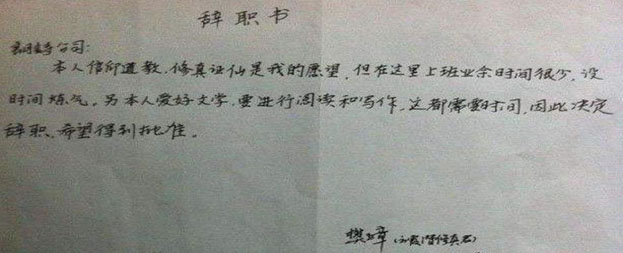 辞职书
公司:
本人信仰道教,修真证仙是我的愿望,但在这里上班业余时间很少,没
时间炼气。另本人爱好文学,要进行阅读和写作,这都需要时间,因此决定
辞职,希望得到批准。
樊璋